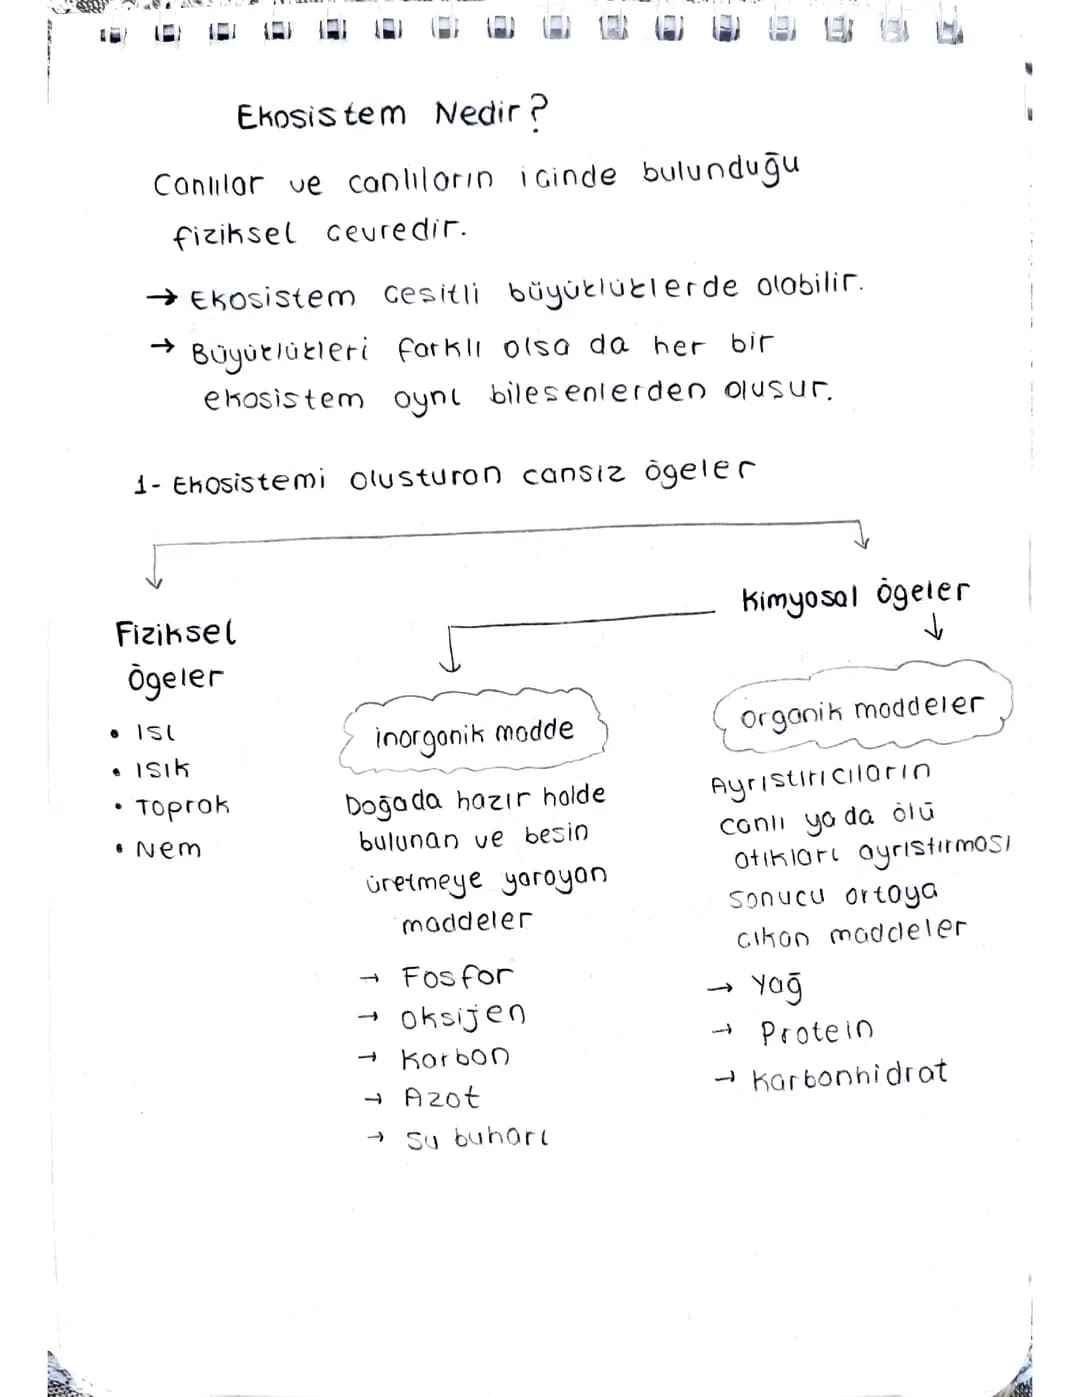 Ekosistem Nedir?
Canlılar ve canlıların icinde bulunduğu
fiziksel cevredir.
→ Ekosistem cesitli büyüklüklerde olabilir.
→ Büyüklükleri farklı olsa da her bir
ekosistem aynı bilesenlerden olusur.
1- Ekosistemi olusturan cansız ögeler
Fiziksel
Ögeler
• ISI
• ISIK
• Toprak
• Nem
Kimyasal ögeler
inorganik madde
Doğada hazır halde
bulunan ve besin
üretmeye yarayan
maddeler
→ Fosfor
→ Oksijen
→ Karbon
→ Azot
→ Su buharı
organik maddeler
Ayrıstırıcıların
canlı ya da ölü
atıkları ayrıstırması
sonucu ortaya
cıkan maddeler
→ Yağ
→ Protein
→ Karbonhidrat